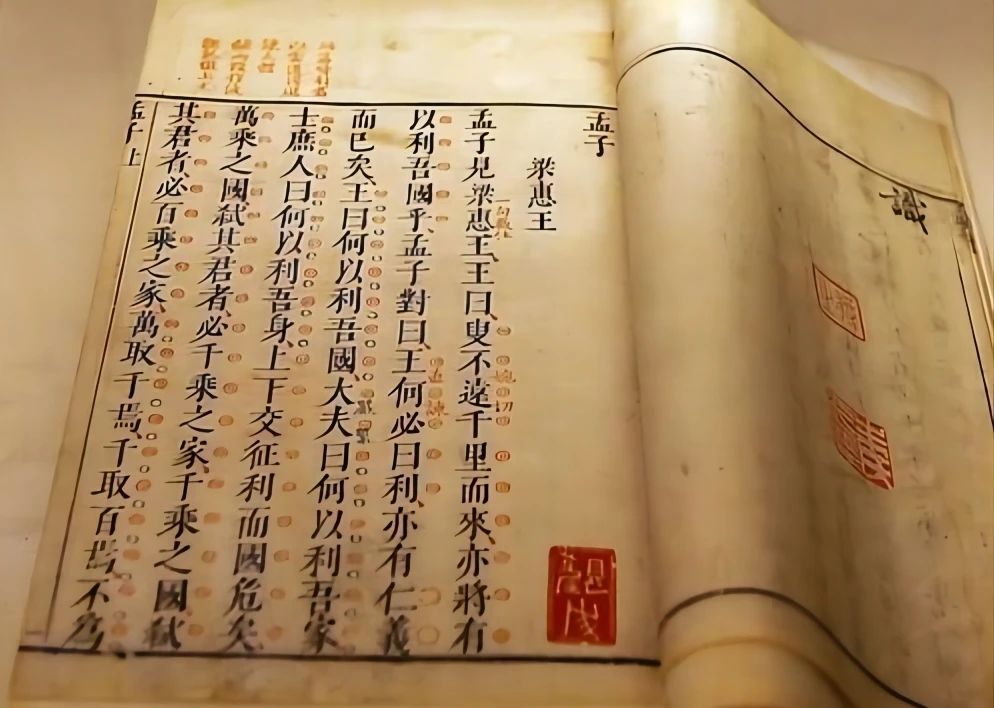 識
孟子
梁惠王
孟子見梁惠王、王曰叟不遠千里而來、亦將有
以利吾國乎、孟子對曰、王何必曰利、亦有仁義
而已矣、王曰何以利吾國、大夫曰何以利吾家
士庶人曰何以利吾身、上下交征利而國危矣
萬乘之國弑其君者、必千乘之家、千乘之國弑
其君者、必百乘之家、萬取千焉、千取百焉、不爲
孟子上